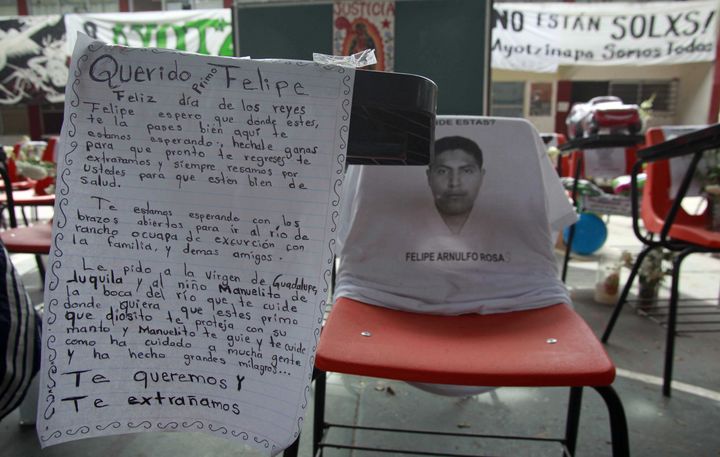 JUSTICIA
AYOT
NO ESTÁN SOLXS!
Ayotzinapa Somos Todos
Querido Primo Felipe
Feliz día de los reyes
Felipe espero que donde estes,
te la pases bien aqui te
estamos esperando, hechale ganas
para que pronto te regreses te
extrañamos y siempre resamos por
ustedes para que esten bien de
salud.
Te estamos esperando con los
brazos abiertos para ir al río de
rancho ocuapa de excurción con
la familia, y demas amigos.
Le pido a la virgen de Guadalupe,
Juquila y al niño Manuelito de
la boca del río que te cuide
donde quiera que estes primo
que diosito te proteja con su
manto y Manuelito te guie y te cuide
como ha cuidado a mucha gente
y ha hecho grandes milagros...
Te queremos y
Te extrañamos
NDE ESTAS?
FELIPE ARNULFO ROSAS